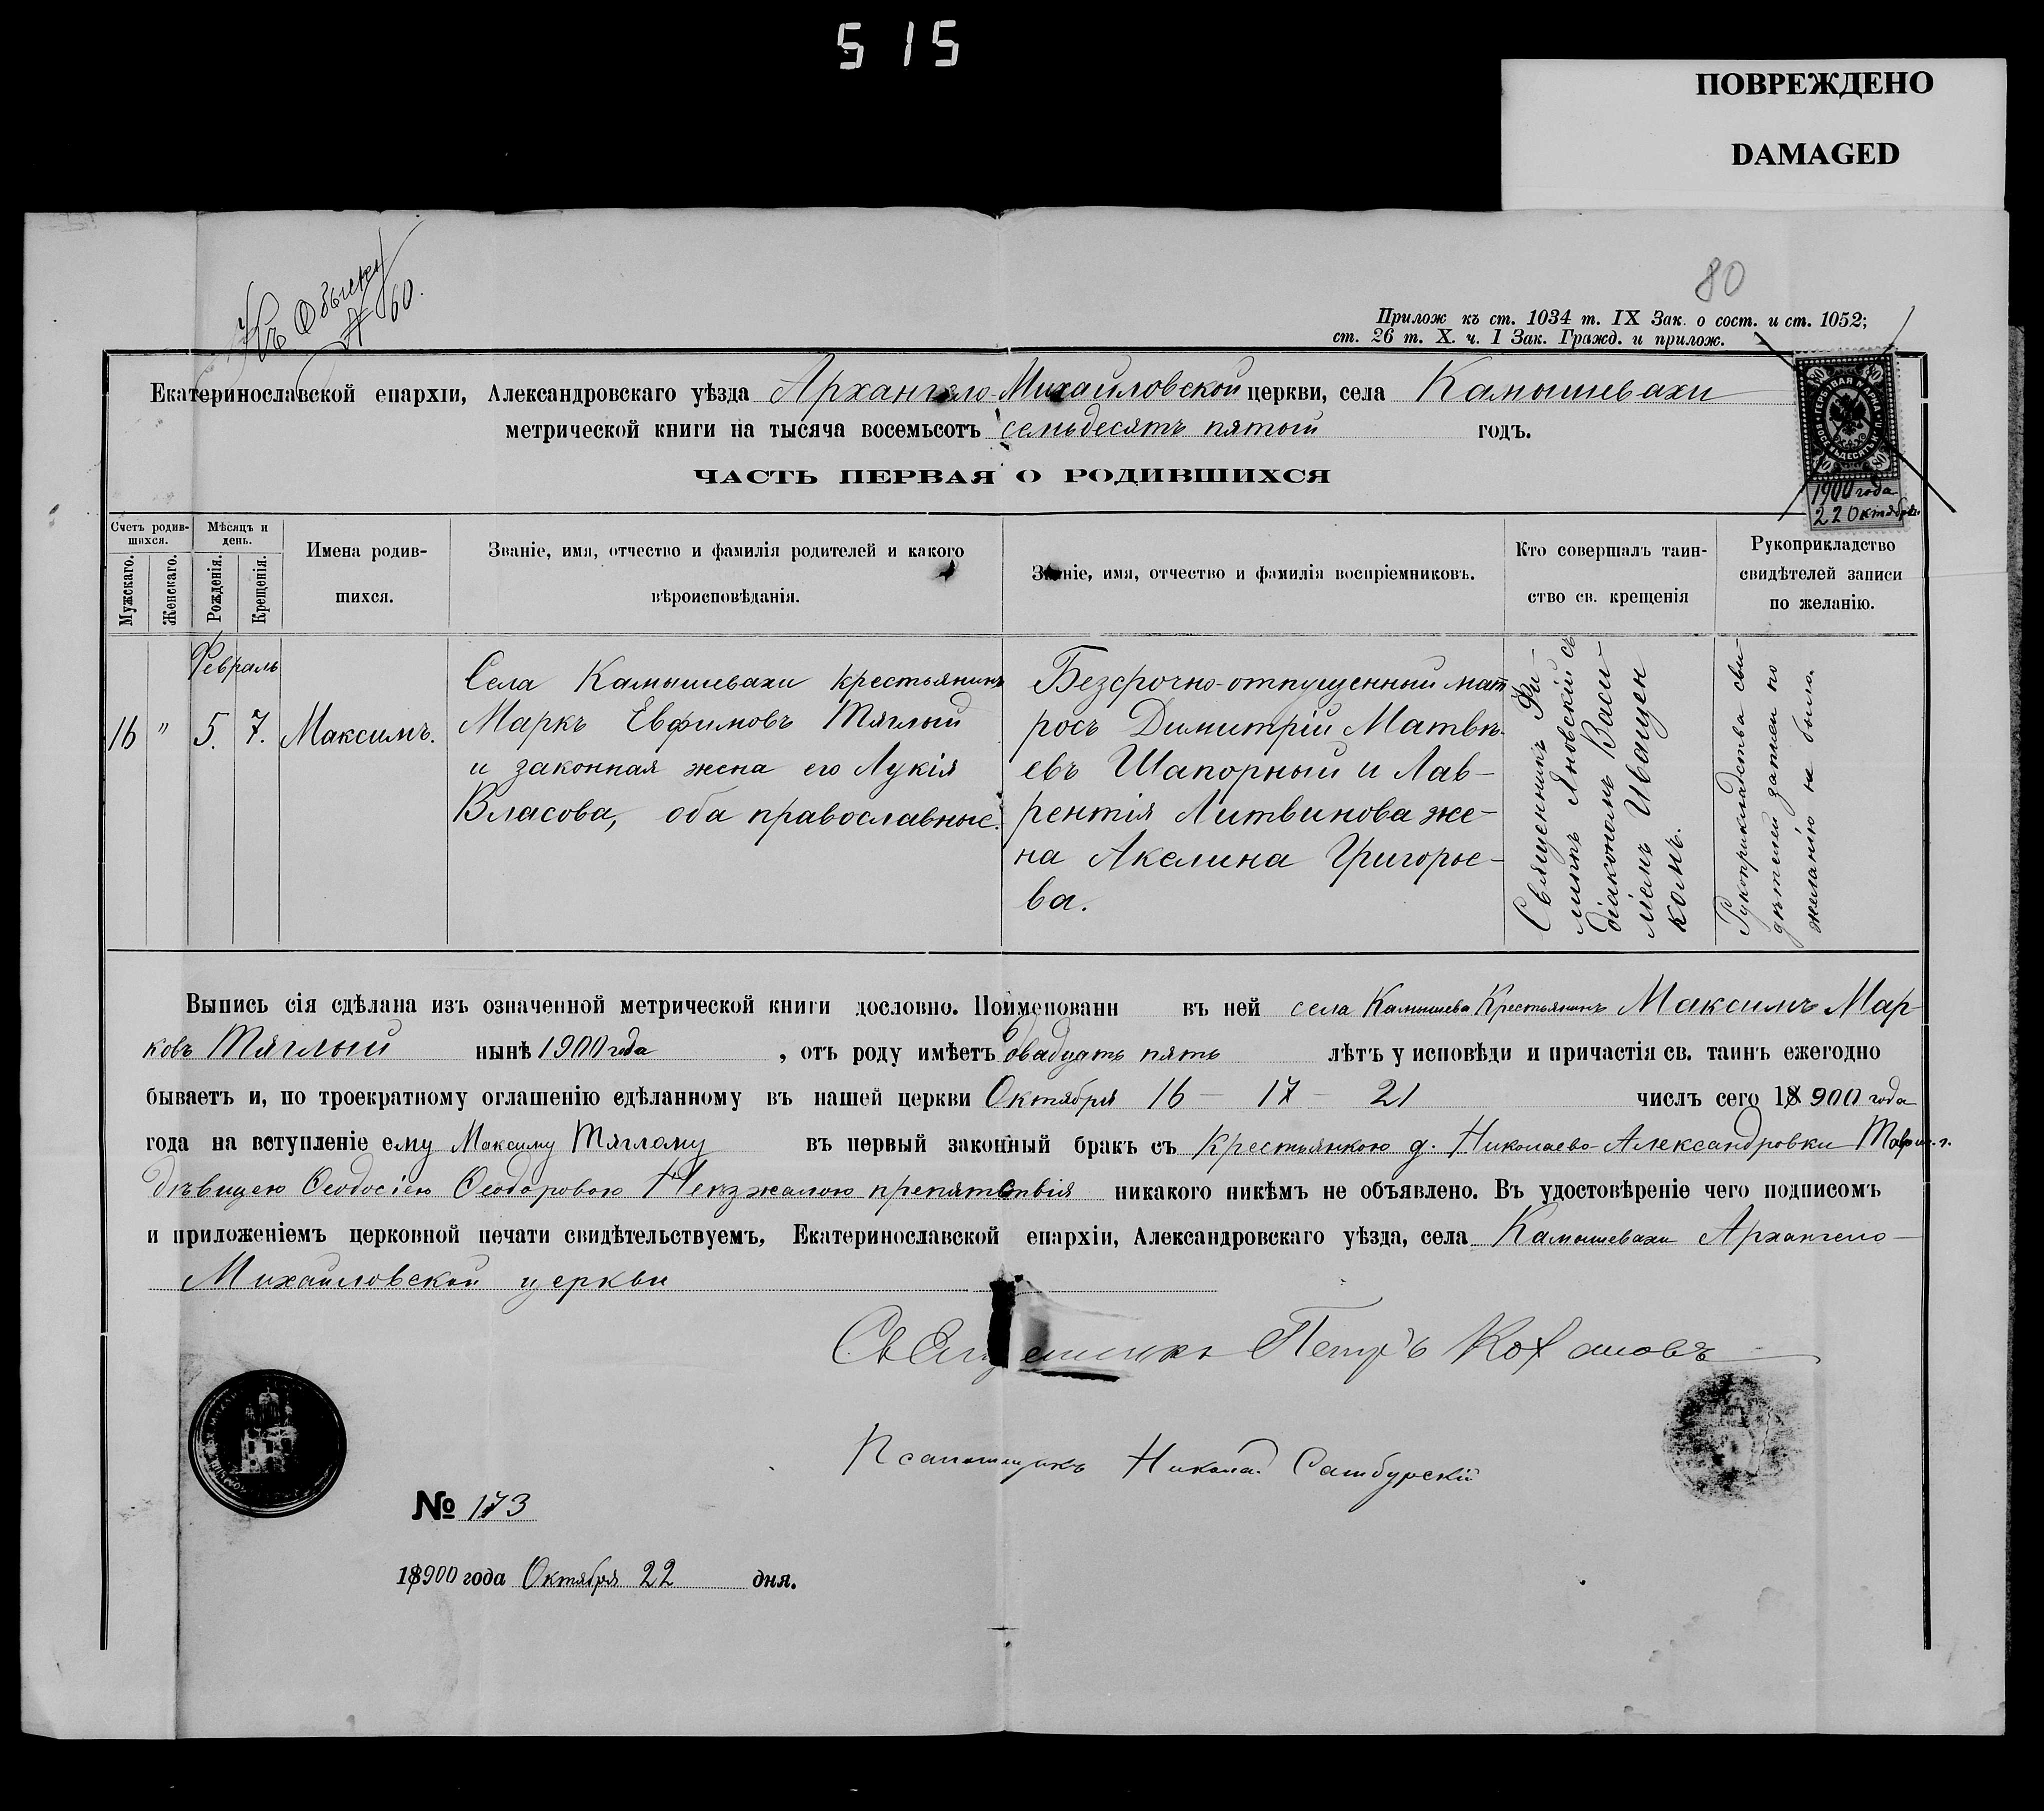 515
ПОВРЕЖДЕНО
DAMAGED
80
Къ Обыску
№ 60.
Прилож къ ст. 1034 т. IX Зак. о сост. и ст. 1052;
ст. 26 т. X. ч. 1 Зак. Гражд. и прилож.
Екатеринославской епархіи, Александровскаго уѣзда Архангело-Михайловской церкви, села Камышевахи
метрической книги на тысяча восемьсотъ семьдесятъ пятый годъ.
ГЕРБОВАЯ МАРКА
80
1900 года
22 Октября
ЧАСТЬ ПЕРВАЯ О РОДИВШИХСЯ
Счетъ родив-
шихся.
Мужскаго.
Женскаго.
Мѣсяцъ и
день.
Рожденія.
Крещенія.
Имена родив-
шихся.
Званіе, имя, отчество и фамилія родителей и какого
вѣроисповѣданія.
Званіе, имя, отчество и фамилія воспріемниковъ.
Кто совершалъ таин-
ство св. крещенія
Рукоприкладство
свидѣтелей записи
по желанію.
16
"
Февраль
5.
7.
Максимъ.
Села Камышевахи крестьянинъ
Маркъ Евфимовъ Тяглый
и законная жена его Лукія
Власова, оба православные.
Безсрочно-отпущенный мат
росъ Димитрій Матвѣ-
евъ Шапорный и Лав-
рентія Литвинова же-
на Акелина Григорье-
ва.
Священникъ Фи-
липпъ Яновскій съ
діакономъ Васи-
ліемъ Иващен
комъ.
Рукоприкладства сви-
дѣтелей записи по
желанію не было.
Выпись сія сдѣлана изъ означенной метрической книги дословно. Поименованн въ ней села Камышева Крестьянинъ Максимъ Мар-
ковъ Тяглый нынѣ 1900 года , отъ роду имѣетъ двадцать пять лѣтъ у исповѣди и причастія св. таинъ ежегодно
бываетъ и, по троекратному оглашенію сдѣланному въ нашей церкви Октября 16 – 17 – 21 числъ сего 18 900 года
года на вступленіе ему Максиму Тяглому въ первый законный бракъ съ Крестьянкою д. Николаево-Александровки
дѣвицею Ѳеодосіею Ѳеодоровою препятствія никакого никѣмъ не объявлено. Въ удостовѣреніе чего подписомъ
и приложеніемъ церковной печати свидѣтельствуемъ, Екатеринославской епархіи, Александровскаго уѣзда, села Камышевахи Архангело-
Михайловской церкви
Священникъ Петръ Кохановъ
Псаломщикъ Николай Самбурскій
№ 173
18900 года Октября 22 дня.